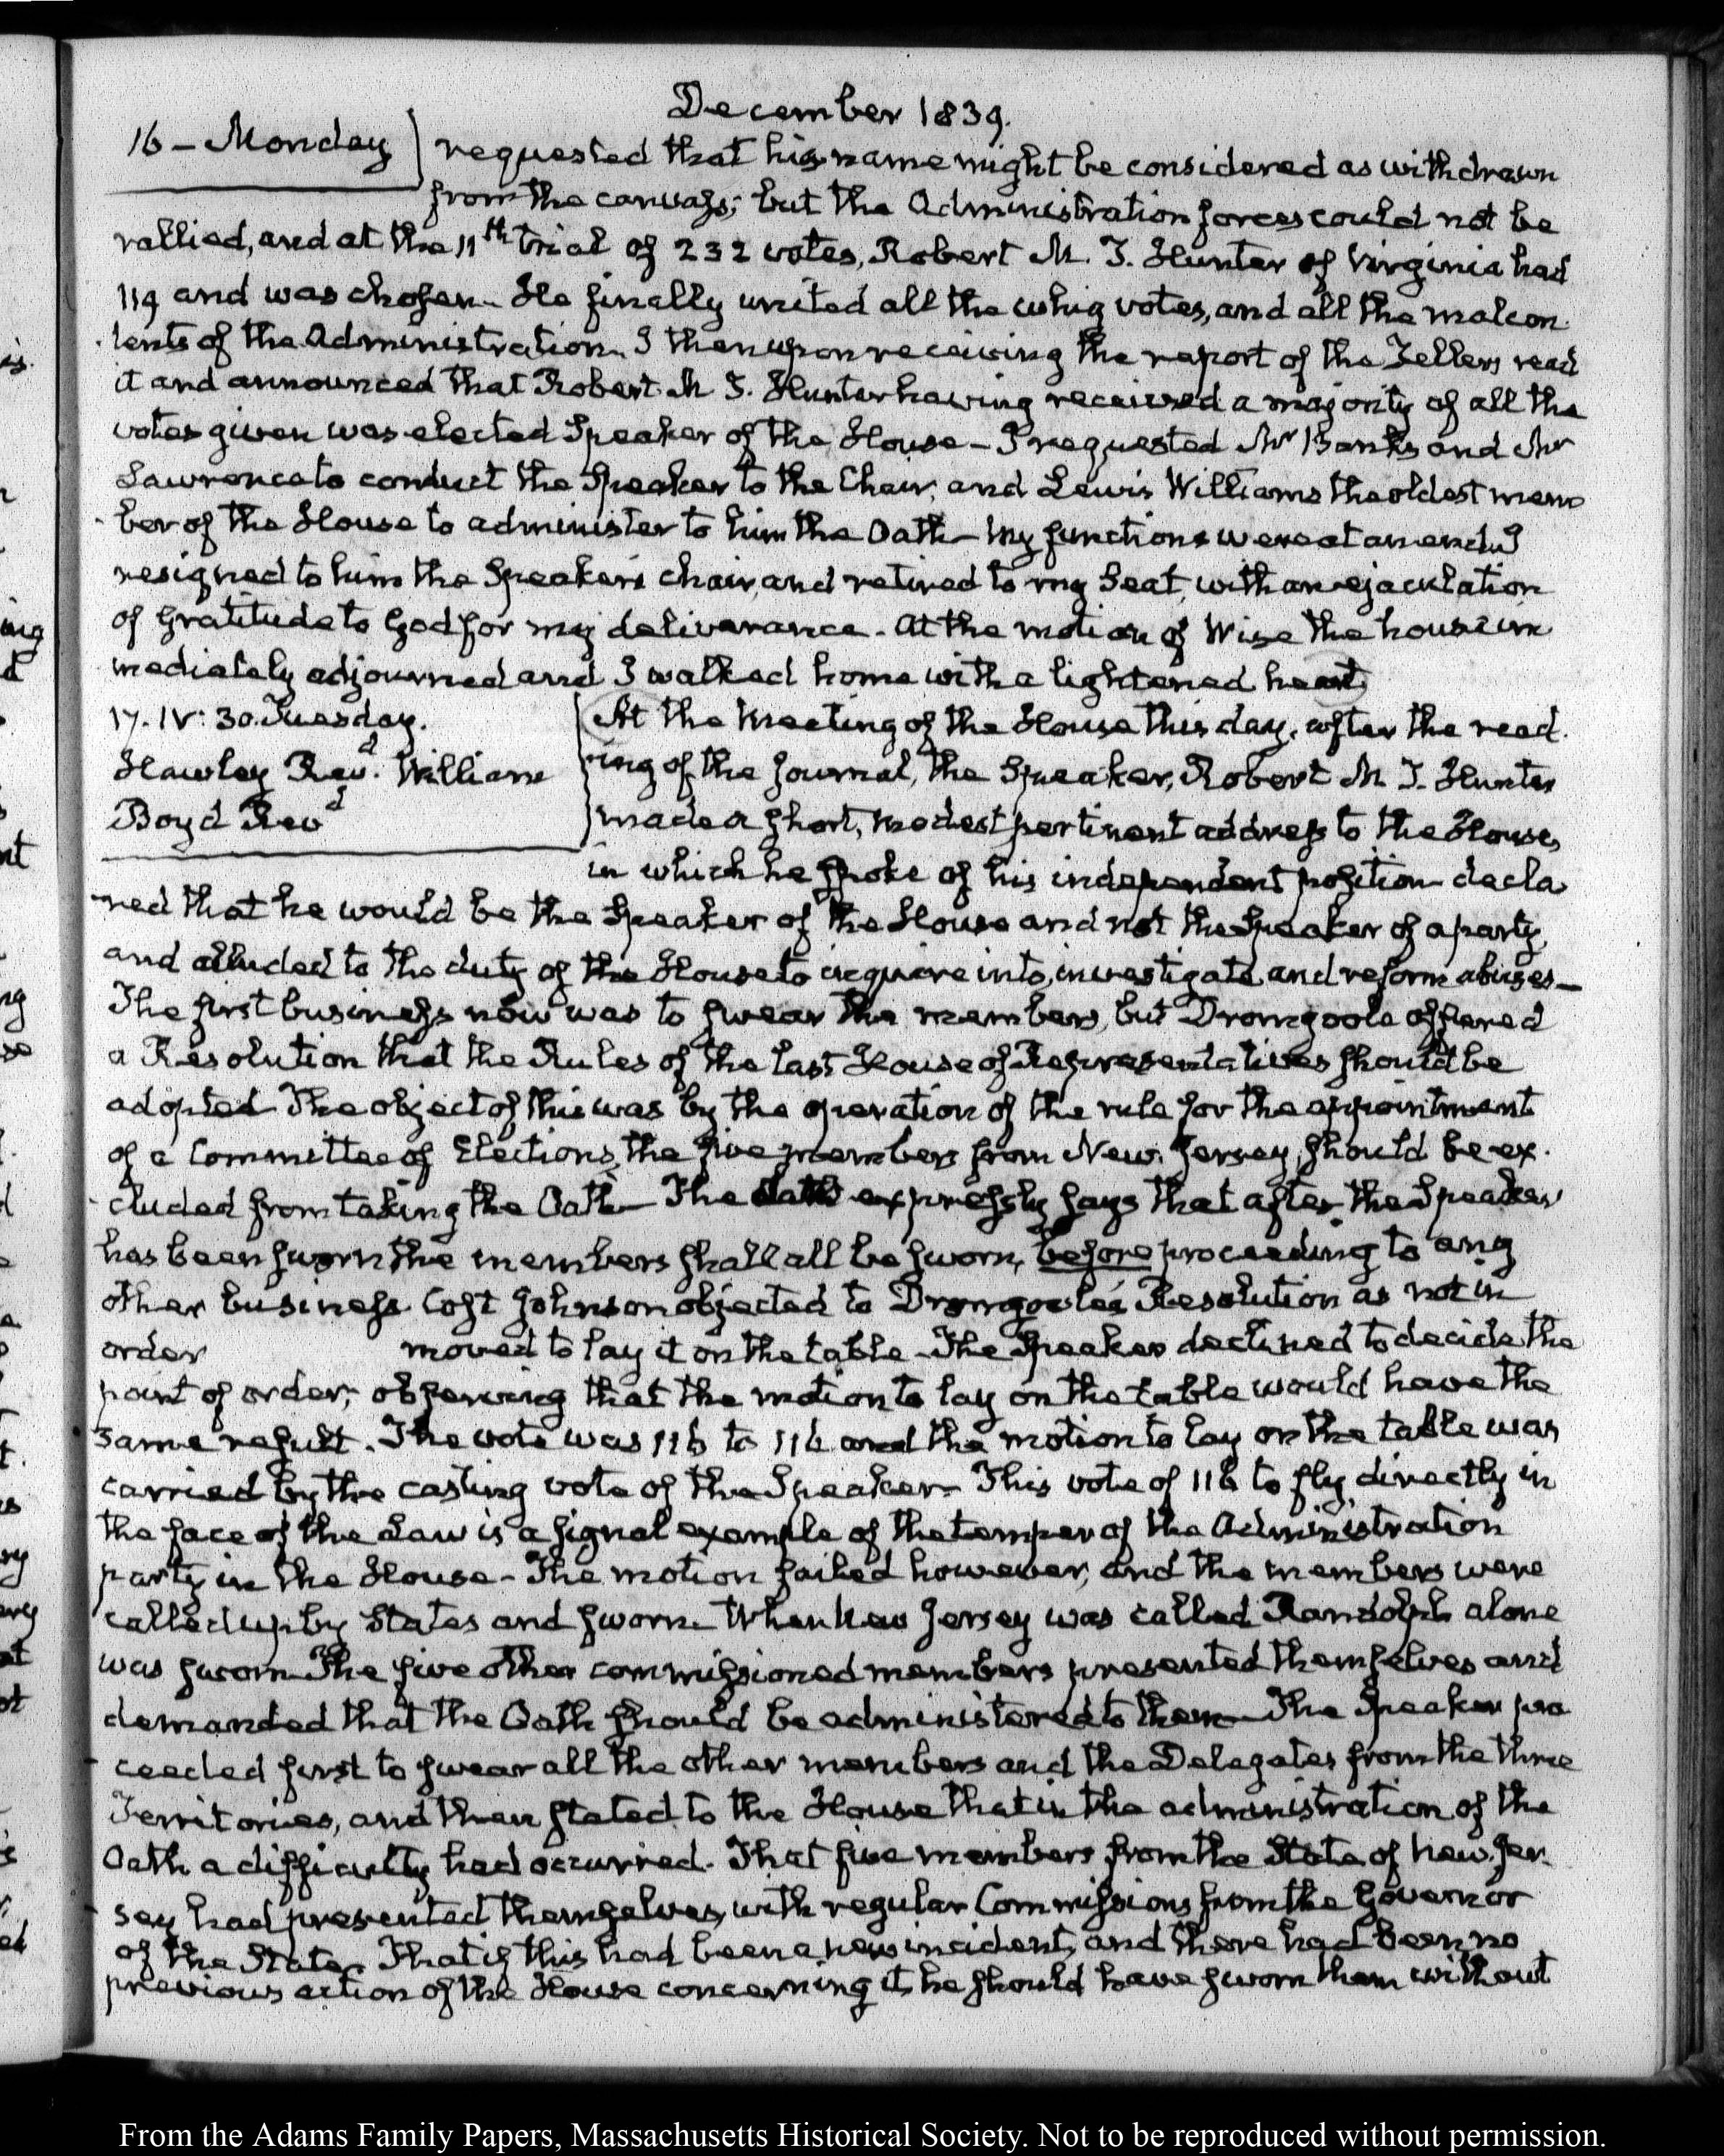 December 1839.
16 – Monday
requested that his name might be considered as withdrawn
from the canvass; but the Administration forces could not be
rallied, and at the 11th trial of 232 votes, Robert M. T. Hunter of Virginia had
119 and was chosen – He finally united all the whig votes, and all the malcon
tents of the Administration. I then upon receiving the report of the Tellers read
it and announced that Robert M T. Hunter having received a majority of all the
votes given was elected Speaker of the House – I requested Mr Banks and Mr
Lawrence to conduct the Speaker to the Chair, and Lewis Williams the oldest mem
ber of the House to administer to him the Oath – My functions were at an end. I
resigned to him the Speaker's chair, and retired to my Seat, with an ejaculation
of gratitude to God for my deliverance. At the motion of Wise the house im
mediately adjourned and I walked home with a lightened heart,
17. IV: 30. Tuesday.
Hawley Revd. William
Boyd Revd
At the Meeting of the House this day, after the read.
ing of the Journal, the Speaker, Robert M. T. Hunter
made a short, modest pertinent address to the House,
in which he spoke of his independent position decla
red that he would be the Speaker of the House and not the Speaker of a party,
and alluded to the duty of the House to inquire into, investigate and reform abuses –
The first business now was to swear the members, but Dromgoole offered
a Resolution that the Rules of the last House of Representatives should be
adopted – The object of this was by the operation of the rule for the appointment
of a Committee of Elections, the five members from New Jersey, should be ex.
cluded from taking the Oath – The expressly says that after the Speaker
has been sworn the members shall all be sworn, before proceeding to any
other business Cost Johnson objected to Dromgoole's Resolution as not in
order moved to lay it on the table – The Speaker declined to decide the
point of order; observing that the motion to lay on the table would have the
same result. The vote was 116 to 116 and the motion to lay on the table was
carried by the casting vote of the Speaker – This vote of 116 to fly directly in
the face of the Law is a signal example of the temper of the Administration
party in the House – The motion failed however, and the members were
called up by States and sworn – When New Jersey was called Randolph alone
was sworn – The five other commissioned members presented themselves and
demanded that the Oath should be administered to them – The Speaker pro
ceeded first to swear all the other members and the Delegates from the three
Territories, and then stated to the House that in the administration of the
Oath a difficulty had occurred. That five members from the State of New Jer.
sey had presented themselves, with regular Commissions from the Governor
of the State. That if this had been a new incident, and there had been no
previous action of the House concerning it, he should have sworn them without
From the Adams Family Papers, Massachusetts Historical Society. Not to be reproduced without permission.